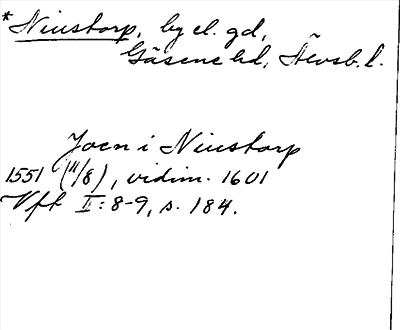 *Niustorp, by el. gd,
Gäsene hd, Älvsb. l.
Joen i Niustorp
1551 (11/8), vidim. 1601
Vff II: 8-9, s. 184.